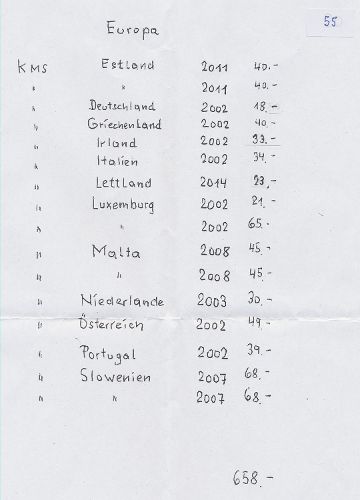 55
Europa
KMS Estland 2011 40.-
" " 2011 40.-
" Deutschland 2002 18.-
" Griechenland 2002 40.-
" Irland 2002 33.-
" Italien 2002 34.-
" Lettland 2014 23,-
" Luxemburg 2002 21.-
" " 2002 65.-
" Malta 2008 45.-
" " 2008 45.-
" Niederlande 2003 30.-
" Österreich 2002 49.-
" Portugal 2002 39.-
" Slowenien 2007 68.-
" " 2007 68.-
658.-